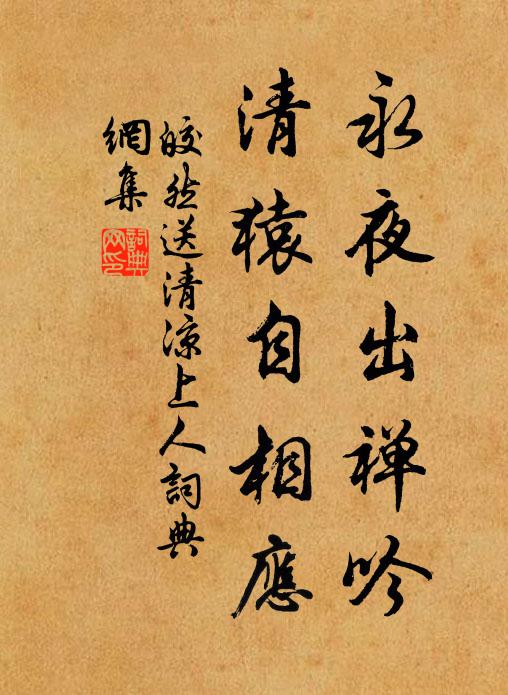 永夜出禅吟
清猿自相應
皎然送清涼上人詞典
網集
詞典
网印